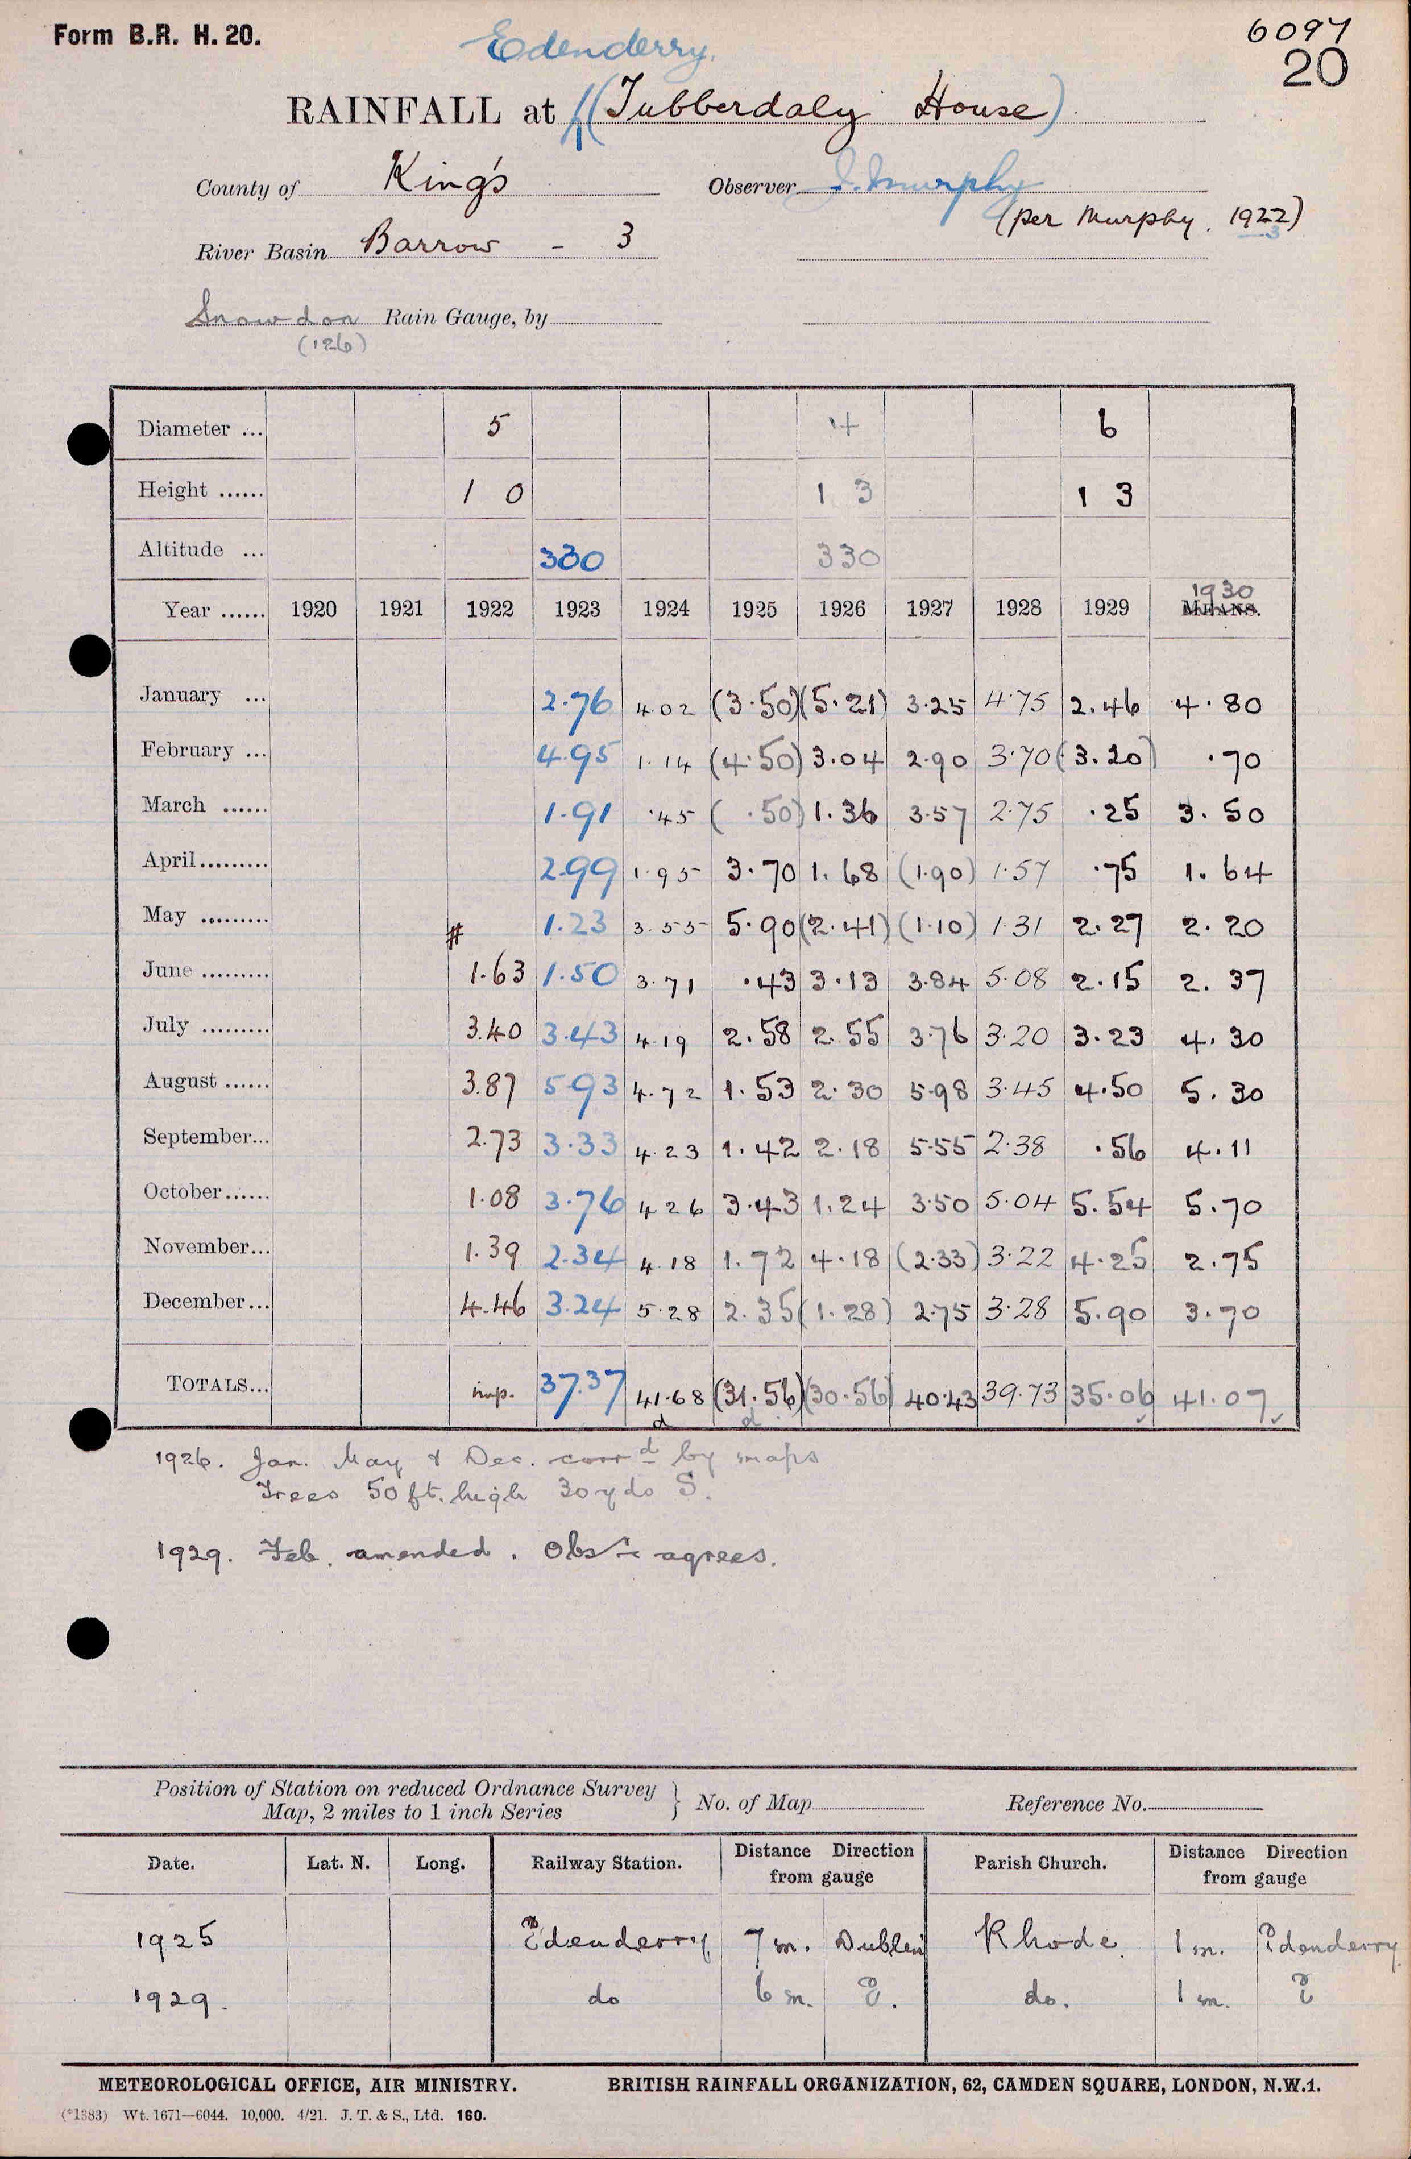 Form B.R. H. 20.
6097
20
Edenderry.
RAINFALL at (Tubberdaly House)
County of King's Observer J. Murphy
(per Murphy, 1922)
3
River Basin Barrow - 3
Snowdon Rain Gauge, by
(126)
Diameter ... 5 4 6
Height ...... 1 0 1 3 1 3
Altitude ... 330 330
1930
Year ...... 1920 1921 1922 1923 1924 1925 1926 1927 1928 1929 MEANS.
January ... 2.76 4.02 (3.50) (5.21) 3.25 4.75 2.46 4.80
February ... 4.95 1.14 (4.50) 3.04 2.90 3.70 (3.20) .70
March ...... 1.91 .45 ( .50) 1.36 3.57 2.75 .25 3.50
April......... 2.99 1.95 3.70 1.68 (1.90) 1.57 .75 1.64
May ......... # 1.23 3.55 5.90 (2.41) (1.10) 1.31 2.27 2.20
June ......... 1.63 1.50 3.71 .43 3.13 3.84 5.08 2.15 2.37
July ......... 3.40 3.43 4.19 2.58 2.55 3.76 3.20 3.23 4.30
August ...... 3.87 5.93 4.72 1.53 2.30 5.98 3.45 4.50 5.30
September... 2.73 3.33 4.23 1.42 2.18 5.55 2.38 .56 4.11
October...... 1.08 3.76 4.26 3.43 1.24 3.50 5.04 5.54 5.70
November... 1.39 2.34 4.18 1.72 4.18 (2.33) 3.22 4.25 2.75
December... 4.46 3.24 5.28 2.35 (1.28) 2.75 3.28 5.90 3.70
TOTALS... imp. 37.37 41.68 (31.56) (30.56) 40.43 39.73 35.06 41.07
d d
1926. Jan. May & Dec. corrd by maps
Trees 50 ft. high 30 yds S.
1929. Feb. amended. Obsr agrees.
Position of Station on reduced Ordnance Survey
Map, 2 miles to 1 inch Series } No. of Map Reference No.
Date. Lat. N. Long. Railway Station. Distance Direction from gauge Parish Church. Distance Direction from gauge
1925 Edenderry 7 m. Dublin Rhode 1 m. Edenderry
1929. do 6 m. E. do. 1 m. E
METEOROLOGICAL OFFICE, AIR MINISTRY. BRITISH RAINFALL ORGANIZATION, 62, CAMDEN SQUARE, LONDON, N.W.1.
(*1383) Wt. 1671—6044. 10,000. 4/21. J. T. & S., Ltd. 160.